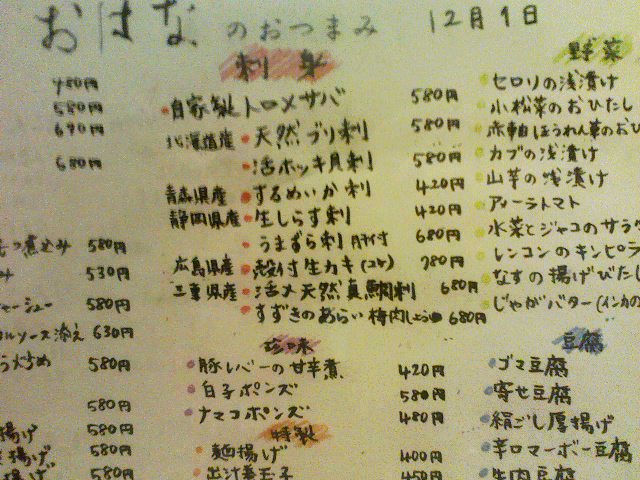 おはなのおつまみ 12月1日
480円
580円
690円
680円
煮込み 580円
み 530円
チャーシュー 580円
ルソース添え 630円
580円
580円
揚げ 580円
揚げ 580円
揚げ 580円
刺身
自家製トロメサバ 580円
北海道産 天然ブリ刺 580円
活ホッキ貝刺 580円
青森県産 するめいか刺 420円
静岡県産 生しらす刺 420円
うまずら刺 肝付 680円
広島県産 殻付生カキ(2ヶ) 780円
三重県産 活〆天然真鯛刺 680円
すずきのあらい 梅肉しょうゆ 680円
珍味
豚レバーの甘辛煮 420円
白子ポンズ 580円
ナマコポンズ 480円
特製
麺揚げ 400円
出汁巻玉子 450円
野菜
セロリの浅漬け
小松菜のおひたし
赤軸ほうれん草のおひ
カブの浅漬け
山芋の浅漬け
アメーラトマト
水菜とジャコのサラダ
レンコンのキンピラ
なすの揚げびたし
じゃがバター(インカの
豆腐
ゴマ豆腐
寄せ豆腐
絹ごし厚揚げ
辛口マーボー豆腐
牛肉豆腐